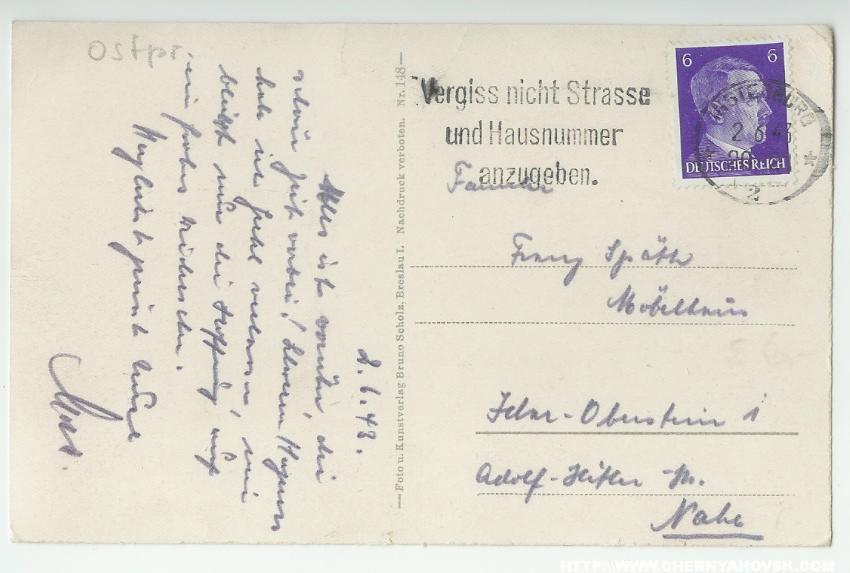 Ostpr
2.6.43.
Alles ist vorüber, die
schön Zeit vorbei! Schweren
hab ich
bleibt nur die Hoffnung auf
ein frohes Wiedersehn.
Herzlichst grüßt Euch
— Foto u. Kunstverlag Bruno Scholz, Breslau I. Nachdruck verboten. Nr. 148 —
Vergiss nicht Strasse
und Hausnummer
anzugeben.
6 6
DEUTSCHES REICH
INSTERBURG
2.6.43
2
Familie
Franz Späth
Möbelhaus
Idar-Oberstein 1
Adolf-Hitler-Str.
Nahe
HTTP://WWW.CHERNYAHOVSK.COM